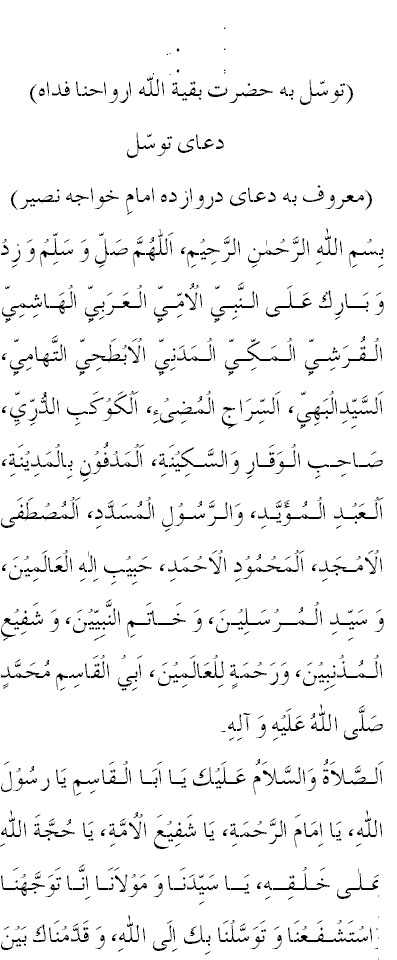 (توسّل به حضرت بقیة اللّه ارواحنا فداه)
دعای توسّل
(معروف به دعای دروازده امامِ خواجه نصیر)
بِسْمِ اللهِ الرَّحْمٰنِ الرَّحِیْمِ، اَللّٰهُمَّ صَلِّ وَ سَلِّمْ وَ زِدْ
وَ بَارِكْ عَلَی النَّبِیِّ الْاُمِّیِّ الْعَرَبِیِّ الْهَاشِمِیِّ
الْقُرَشِیِّ الْمَکِّیِّ الْمَدَنِیِّ الْاَبْطَحِیِّ التَّهامِیِّ،
اَلسَّیِّدِالْبَهِیِّ، اَلسِّرَاجِ الْمُضِیْءِ، اَلْکَوْکَبِ الدُّرِّیِّ،
صَاحِبِ الْوَقَارِ وَالسَّکِیْنَةِ، اَلْمَدْفُوْنِ بِالْمَدِیْنَةِ،
اَلْعَبْدِ الْمُؤَیَّدِ، وَالرَّسُوْلِ الْمُسَدَّدِ، اَلْمُصْطَفَی
الْاَمْجَدِ، اَلْمَحْمُوْدِ الْاَحْمَدِ، حَبِیْبِ اِلٰهِ الْعَالَمِیْنَ،
وَ سَیِّدِ الْمُرْسَلِیْنَ، وَ خَاتَمِ النَّبِیِّیْنَ، وَ شَفِیْعِ
الْمُذْنِبِیْنَ، وَرَحْمَةٍ لِلْعَالَمِیْنَ، اَبِیْ الْقَاسِمِ مُحَمَّدٍ
صَلَّی اللهُ عَلَیْهِ وَ آلِهِ۔
اَلصَّلَاةُ وَالسَّلَامُ عَلَیْكَ یَا اَبَا الْقَاسِمِ یَا رَسُوْلَ
اللهِ، یَا اِمَامَ الرَّحْمَةِ، یَا شَفِیْعَ الْاُمَّةِ، یَا حُجَّةَ اللهِ
عَلٰی خَلْقِهِ، یَا سَیِّدَنَا وَ مَوْلَانَا اِنَّا تَوَجَّهْنَا
وَاسْتَشْفَعْنَا وَ تَوَسَّلْنَا بِكَ اِلَی اللهِ، وَ قَدَّمْنَاكَ بَیْنَ